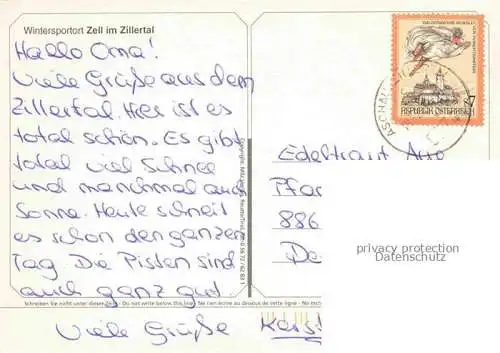 Wintersportort Zell im Zillertal
Hallo Oma!
Viele Grüße aus dem
Zillertal. Hier ist es
total schön. Es gibt
total viel Schnee
und manchmal auch
Sonne. Heute schneit
es schon den ganzen
Tag. Die Pisten sind
auch ganz gut
Viele Grüße
Schreiben Sie nicht unter dieser · Do not write below this line · Ne rien écrire au dessous de cette ligne · No
REPUBLIK ÖSTERREICH
7
Edeltraut
886
privacy protection
Datenschutz